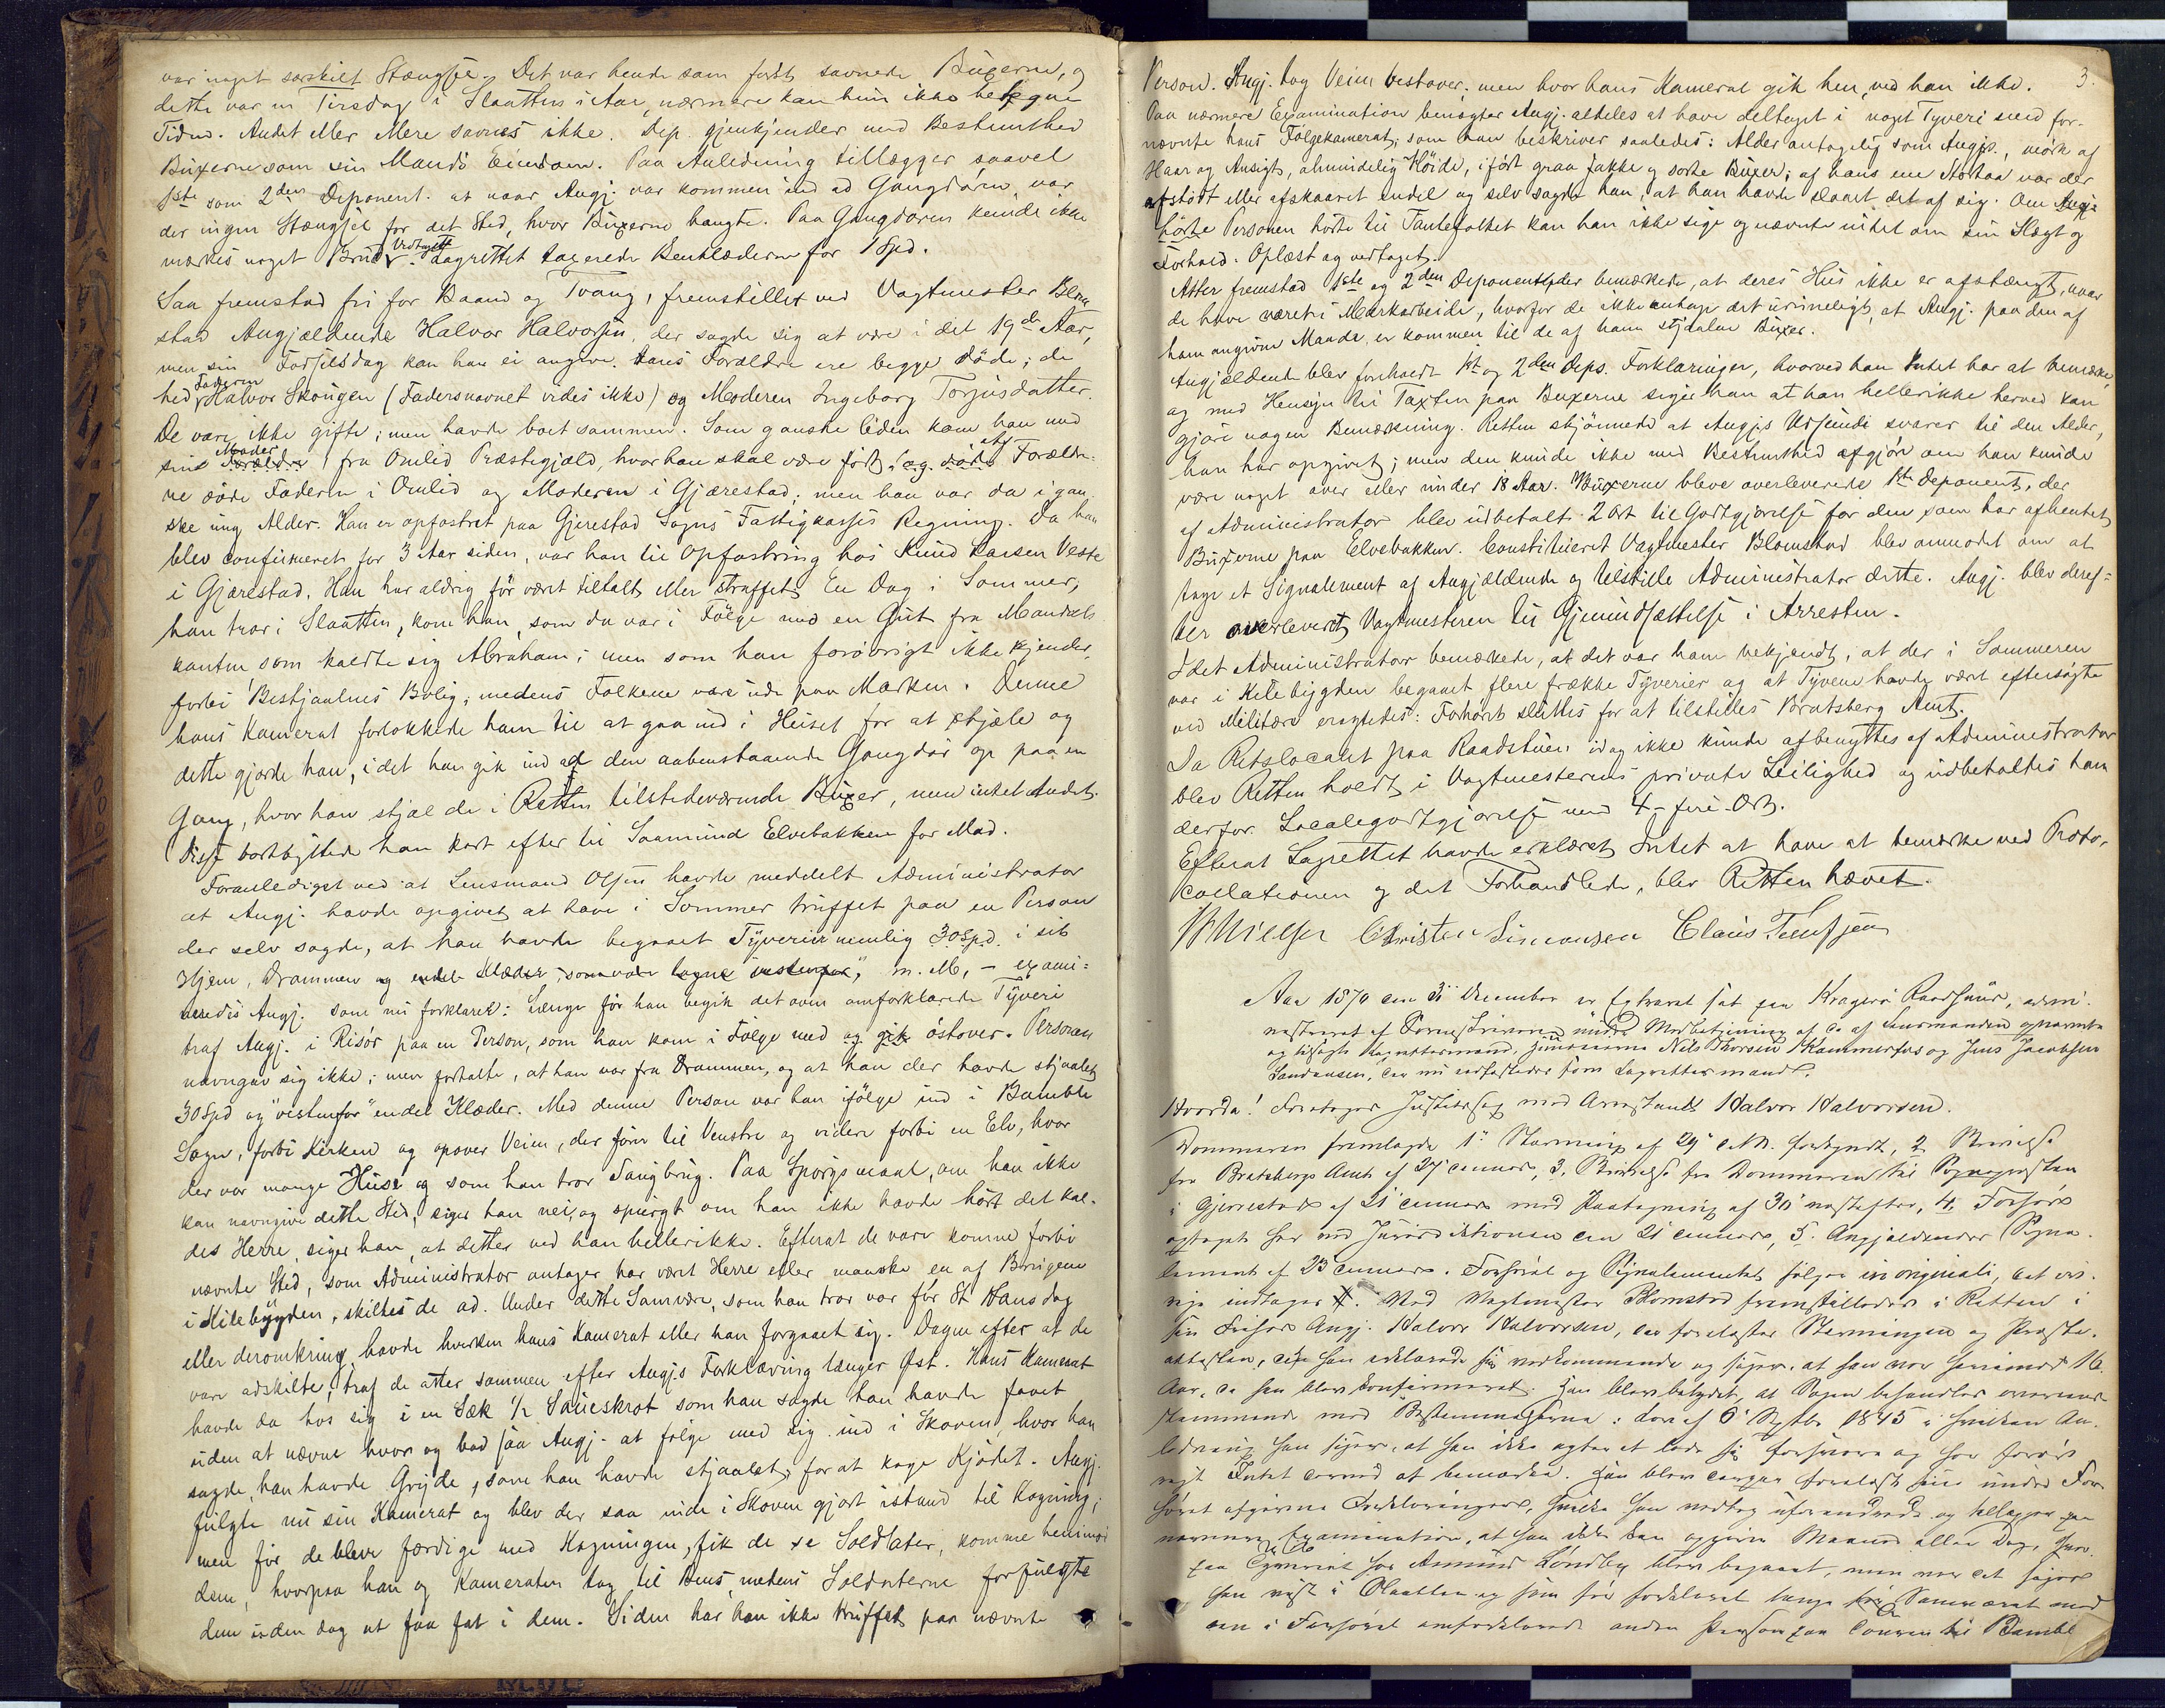 var noget særskilt Stængsel. Det var hende som først savnede Buxerne, og
dette var en Tirsdag i Slaatten i Aar, nærmere kan hun ikke betegne
Tiden. Andet eller Mere savnes ikke. Dep. gjenkjender med Bestemthed
Buxerne som sin Mands Eiendom. Paa Anledning tillægger saavel
1ste som 2den Deponent. at naar Angj. var kommen ind ad Gangdøren, var
der ingen Stængsel for det Sted, hvor Buxerne hangte. Paa Gangdøren kunde ikke
mærkes noget Brud. Vedtaget Lagrettet taxerede Benklæderne for 1 Spd.
Saa fremstod fri for Baand og Tvang, fremstillet ved Vagtmester Blom
stad Angjældende Halvor Halvorsen, der sagde sig at være i det 19de Aar,
men sin Fødselsdag kan han ei angive. Hans Forældre ere begge døde; de
hed Faderen Halvor Skougen (Fadersnavnet vides ikke) og Moderen Ingeborg Torjusdatter.
De vare ikke gifte; men havde boet sammen. Som ganske liden kom han med
sin Moder Forældre fra Omlid Præstegjæld, hvor han skal være født, og af Foræld-
re døde Faderen i Omlid og Moderen i Gjærestad; men han var da i gan-
ske ung Alder. Han er opfostret paa Gjerestad Sogns Fattigkasses Regning. Da han
blev confirmeret for 3 Aar siden, var han til Opfostring hos Knud Larsen Veste
i Gjærestad. Han har aldrig før været tiltalt eller straffet. En Dag i Sommer,
han tror i Slaatten, kom han, som da var i Følge med en Gut fra Mandals
kanten som kaldte sig Abraham; men som han forøvrigt ikke kjender,
forbi Bestjaalnes Bolig, medens Folkene vare ude paa Marken. Denne
hans Kamerat forlokkede ham til at gaa ind i Huset for at stjæle og
dette gjorde han, idet han gik ind ad den aabenstaaende Gangdør op paa en
Gang, hvor han stjal de i Retten tilstedeværende Buxer, men intet Andet.
Disse bortbyttede han kort efter til Saamund Elvebakken for Mad.
Foranlediget ved at Lensmand Olsen havde meddelt Administrator
at Angj. havde opgivet at have i Sommer truffet paa en Person
der selv sagde, at han havde begaaet Tyverier nemlig 30 Spd. i sit
Hjem, Drammen og endel Klæder, som vare tagne "vestenfor", m. M., - exami-
neredes Angj. som nu forklarer: Længe før han begik det oven omforklarede Tyveri
traf Angj. i Risør paa en Person, som han kom i Følge med og gik østover. Personen
navngav sig ikke; men fortalte, at han var fra Drammen, og at han der havde stjaalet
30 Spd og "vestenfor" endel Klæder. Med denne Person var han ifølge ind i Bamble
Sogn, forbi Kirken og opover Veien, der fører til Venstre og videre forbi en Elv, hvor
der var mange Huse og som han tror Saugbrug. Paa Spørgsmaal, om han ikke
kan navngive dette Sted, siger han nei, og spurgt om han ikke havde hørt det kal-
des Herre, siger han, at dette ved han hellerikke. Efterat de vare komne forbi
nævnte Sted, som Administrator antager har været Herre eller maaske en af Brugene
i Kilebygden, skiltes de ad. Under dette Samvære, som han tror var før St Hansdag
eller deromkring, havde hverken hans Kamerat eller han forgaaet sig. Dagen efter at de
vare adskilte, traf de atter sammen efter Angjs Forklaring længer Øst. Hans Kamerat
havde da hos sig i en Sæk 1/2 Saueskrot som han sagde han havde faaet
uden at nævne hvor og bad saa Angj. at følge med sig ind i Skoven, hvor han
sagde, han havde Gryde, som han havde stjaalet, for at koge Kjødet. Angj.
fulgte nu sin Kamerat og blev der saa inde i Skoven gjort istand til Kogning;
men før de bleve færdige med Kogningen, fik de se Soldater, komme henimod
dem, hvorpaa han og Kameraten tog til Bens medens Soldaterne forfulgte
dem uden dog at faa fat i dem. Siden har han ikke truffet paa nævnte
3.
Person. Angj. tog Veien vestover, men hvor hans Kamerat gik hen, ved han ikke.
Paa nærmere Examination benægter Angj. aldeles at have deltaget i noget Tyveri med for-
nævnte hans Følgekamerat, som han beskriver saaledes: Alder antagelig som Angjs., mørk af
Haar og Ansigt, almindelig Høide, iført graa Jakke og sorte Buxer; af hans ene Stortaa var der
afstødt eller afskaaret endel og selv sagde han, at han havde skaaret det af sig. Om Angje
hørte Personen hørte til Tantefolket kan han ikke sige og nævnte intet om sin Slægt og
Forhold. Oplæst og vedtaget.
Atter fremstod 1ste og 2den Deponent der bemærkede, at deres Hus ikke er afstængt, naar
de have været i Markarbeide, hvorfor de ikke antage det urimeligt, at Angj. paa den af
ham angivne Maade, er kommen til de af ham stjaalne Buxer.
Angjældende blev foreholdt 1st og 2den Deps. Forklaringer, hvorved han Intet har at bemærke,
og med Hensyn til Taxten paa Buxerne siger han at han hellerikke herved kan
gjøre nogen Bemærkning. Retten skjønnede at Angjs Udseende svarer til den Alder,
han har opgivet; men den kunde ikke med Bestemthed afgjøre om han kunde
være noget over eller under 18 Aar. Buxerne bleve overleverede 1ste Deponent, der
af Administrator blev udbetalt 2 Ort til Godtgjørelse for den som har afhentet
Buxerne paa Elvebakken. Constitueret Vagtmester Blomstad blev anmodet om at
tage et Signalement af Angjældende og tilstille Administrator dette. Angj. blev deref-
ter overleveret Vagtmesteren til Gjenindsættelse i Arresten.
Idet Administrator bemærkede, at det var ham bekjendt, at der i Sommeren
var i Kilebygden begaaet flere frække Tyverier og at Tyvene havde været eftersøgte
ved Militære eragtedes: Forhøret sluttes for at tilstilles Bratsberg Amt.
Da Retslocalet paa Raadstuen idag ikke kunde afbenyttes af Administrator
blev Retten holdt i Vagtmesterens private Leilighed og udbetaltes ham
derfor Localegodtgjørelse med 4 - fire - Ort.
Efterat Lagrettet havde erklæret Intet at have at bemærke ved Proto-
collationen og det Forhandlede, blev Retten hævet.
Christen Simonsen
Aar 1870 den 3 December er Extraret sat paa Kragerø Raadhuus, admi-
nistreret af Sorenskriveren under Medbetjening af de af Lensmanden opnævnte
og tilsagte Lagrettesmænd, Nils Thorsen Kammerfos og Jens Jacobsen
Sandaasen, der nu edfæstedes som Lagrettesmænd.
Hvorda! Foretages Justitssag mod Arrestanten Halvor Halvorsen.
Dommeren fremlagde 1. Stævning af 29 d. M. forkyndt, 2. Skrivelse
fra Bratsbergs Amt af 27 , 3. Skrivelse fra Dommeren til Sognepresten
i Gjerrestad af 21 med Paategning af 30 næstefter, 4. Forhør
optaget her ved Jurisdiktionen den 21 , 5. Angjældendes Signa-
lement af 23 . Forhøret og Signalementet følger in originali, det øv-
rige indtages #. Ved Vagtmester Blomstad fremstilledes i Retten i
sin Frihed Angj. Halvor Halvorsen, der forelæstes Stævningen og Præste-
attesten, erklærede sig vedkommende og siger, at han var henimod 16
Aar, da han blev konfirmeret. Han blev betydet, at Sagen behandles
stemmende med Bestemmelserne i Lov af 6 Septbr. 1845 i hvilken An-
ledning han siger, at han ikke agter at lade sig forsvare og har forøv-
rigt Intet at bemærke. Han blev forelæst sine under For-
høret afgivne Forklaringer, hvilke han vedtog uforandrede og tillægger paa
nærmere Examination, at han ikke kan opgive Maaned eller Dag,
blev begaaet, men var det
i Slaatten og som før forklaret længe før Samværet med
den i Forhøret omforklarede anden Person paa Touren til Bamble